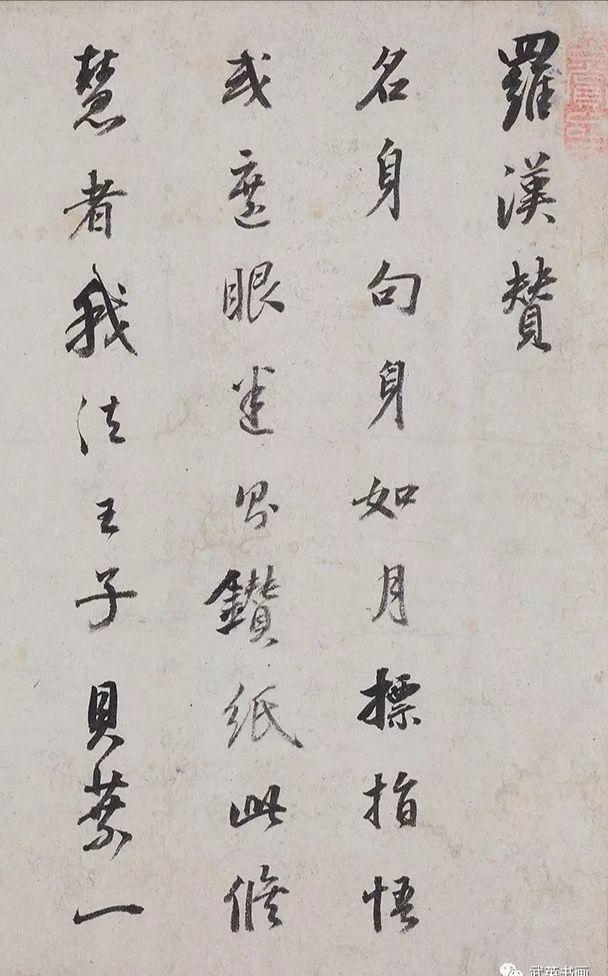 羅漢贊
名身句身如月摽指悟
或遮眼迷鑽紙此脩
慧者我法王子貝葉一
武英书画